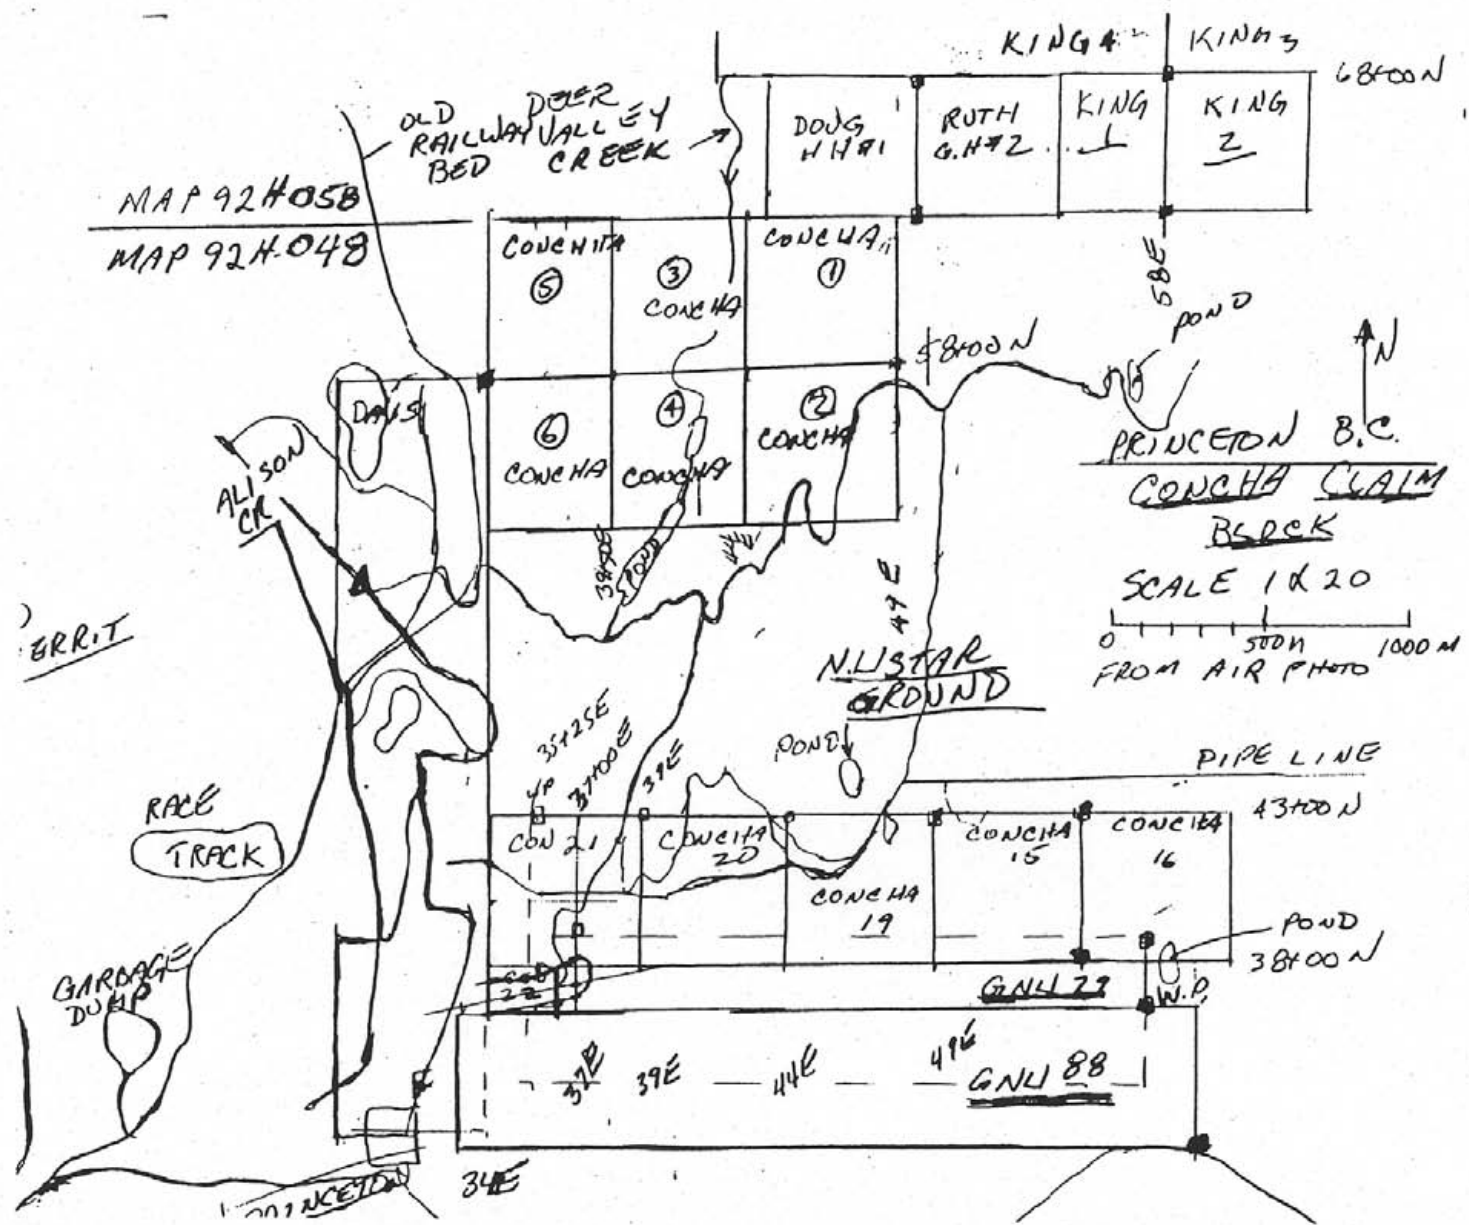 KING 4
KING 3
68+00N
OLD
RAILWAY
BED
DEER
VALLEY
CREEK
DOUG
HH#1
RUTH
G.H#2
KING
1
KING
2
MAP 92H058
MAP 92H-048
CONCHITA
5
3
CONCHA
CONCHA
1
58E
POND
58+00N
N
DAVIS
6
CONCHA
4
CONCHA
2
CONCHA
PRINCETON B.C.
CONCHA CLAIM
BLOCK
ALISON
CR
38+50E
POND
49E
SCALE
0
500M
1000M
FROM AIR PHOTO
ERRIT
GROUND
35+25E
37+00E
39E
POND
PIPE LINE
43+00N
RACE
TRACK
CON 21
CONCHA
20
CONCHA
15
CONCHA
16
CONCHA
19
POND
38+00N
GARBAGE
DUMP
22
GNU 79
W.P.
37E
39E
44E
49E
GNU 88
34E
PRINCETON